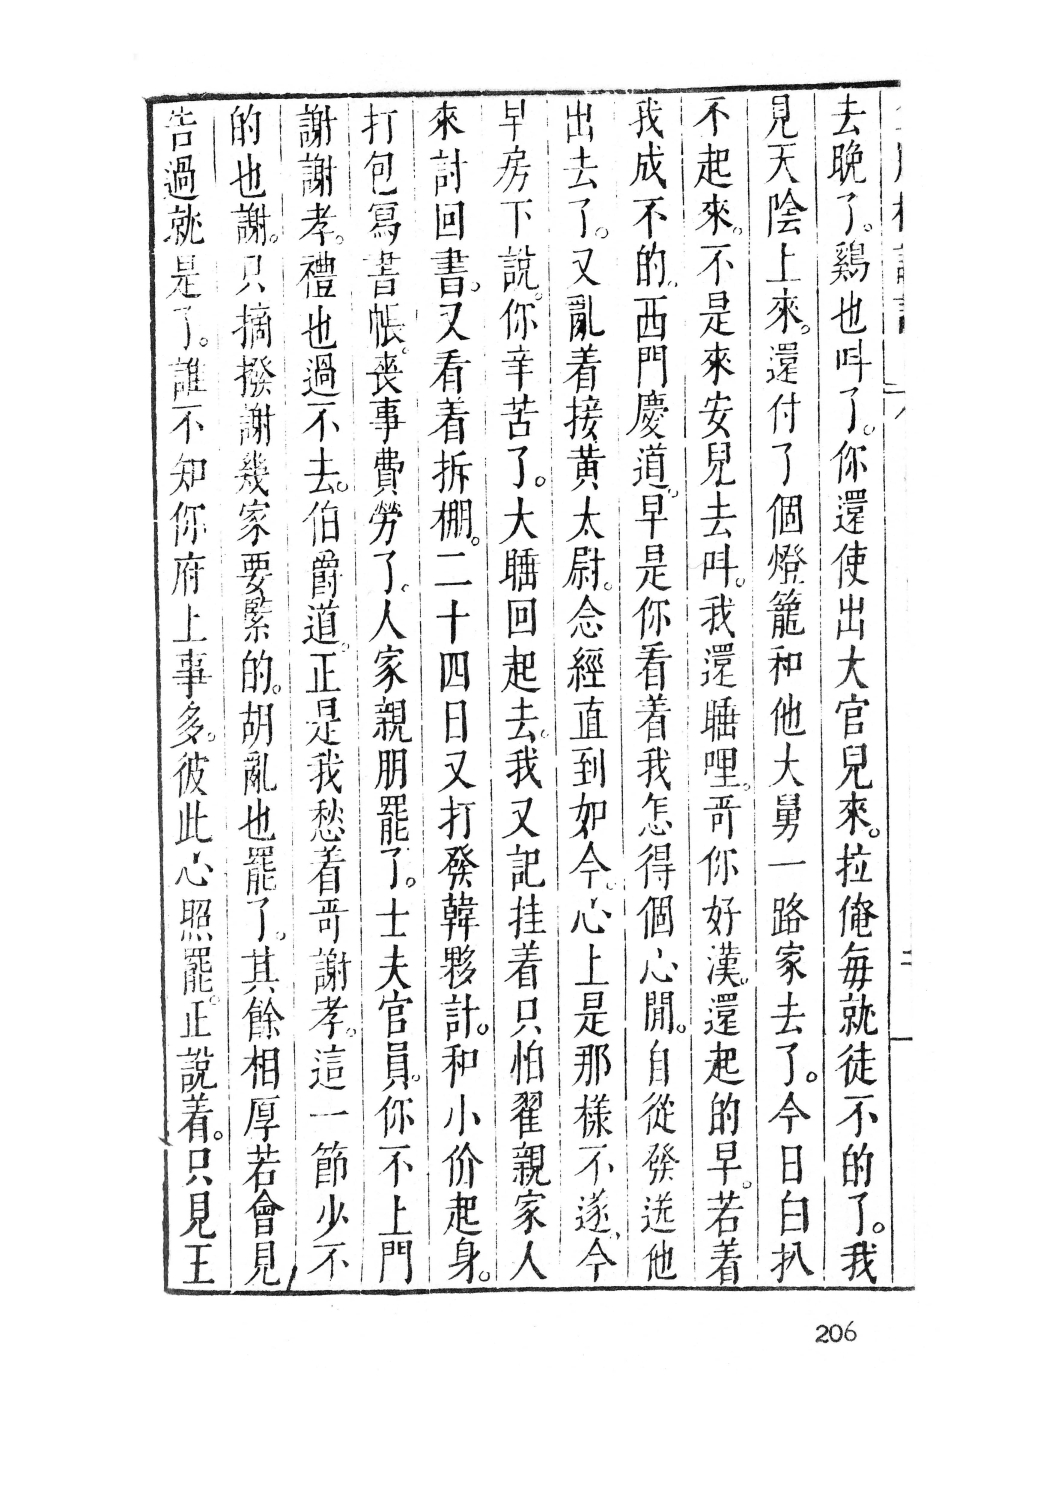 去晚了。鷄也呌了。你還使出大官兒來。拉俺每就徒不的了。我
見天陰上來。還付了個燈籠和他大舅一路家去了。今日白扒
不起來。不是來安兒去呌。我還睡哩。哥你好漢。還起的早。若着
我成不的。西門慶道。早是你看着我怎得個心閒。自從發送他
出去了。又亂着接黃太尉。念經直到如今。心上是那樣不遂。今
早房下說。你辛苦了。大睡回起去。我又記挂着只怕翟親家人
來討回書。又看着拆棚。二十四日又打發韓夥計。和小价起身。
打包寫書帳。喪事費勞了。人家親朋罷了。士夫官員。你不上門
謝謝孝。禮也過不去。伯爵道。正是我愁着哥謝孝。這一節少不
的也謝。只摘撥謝幾家要緊的。胡亂也罷了。其餘相厚若會見
告過就是了。誰不知你府上事多。彼此心照罷。正說着。只見王
206